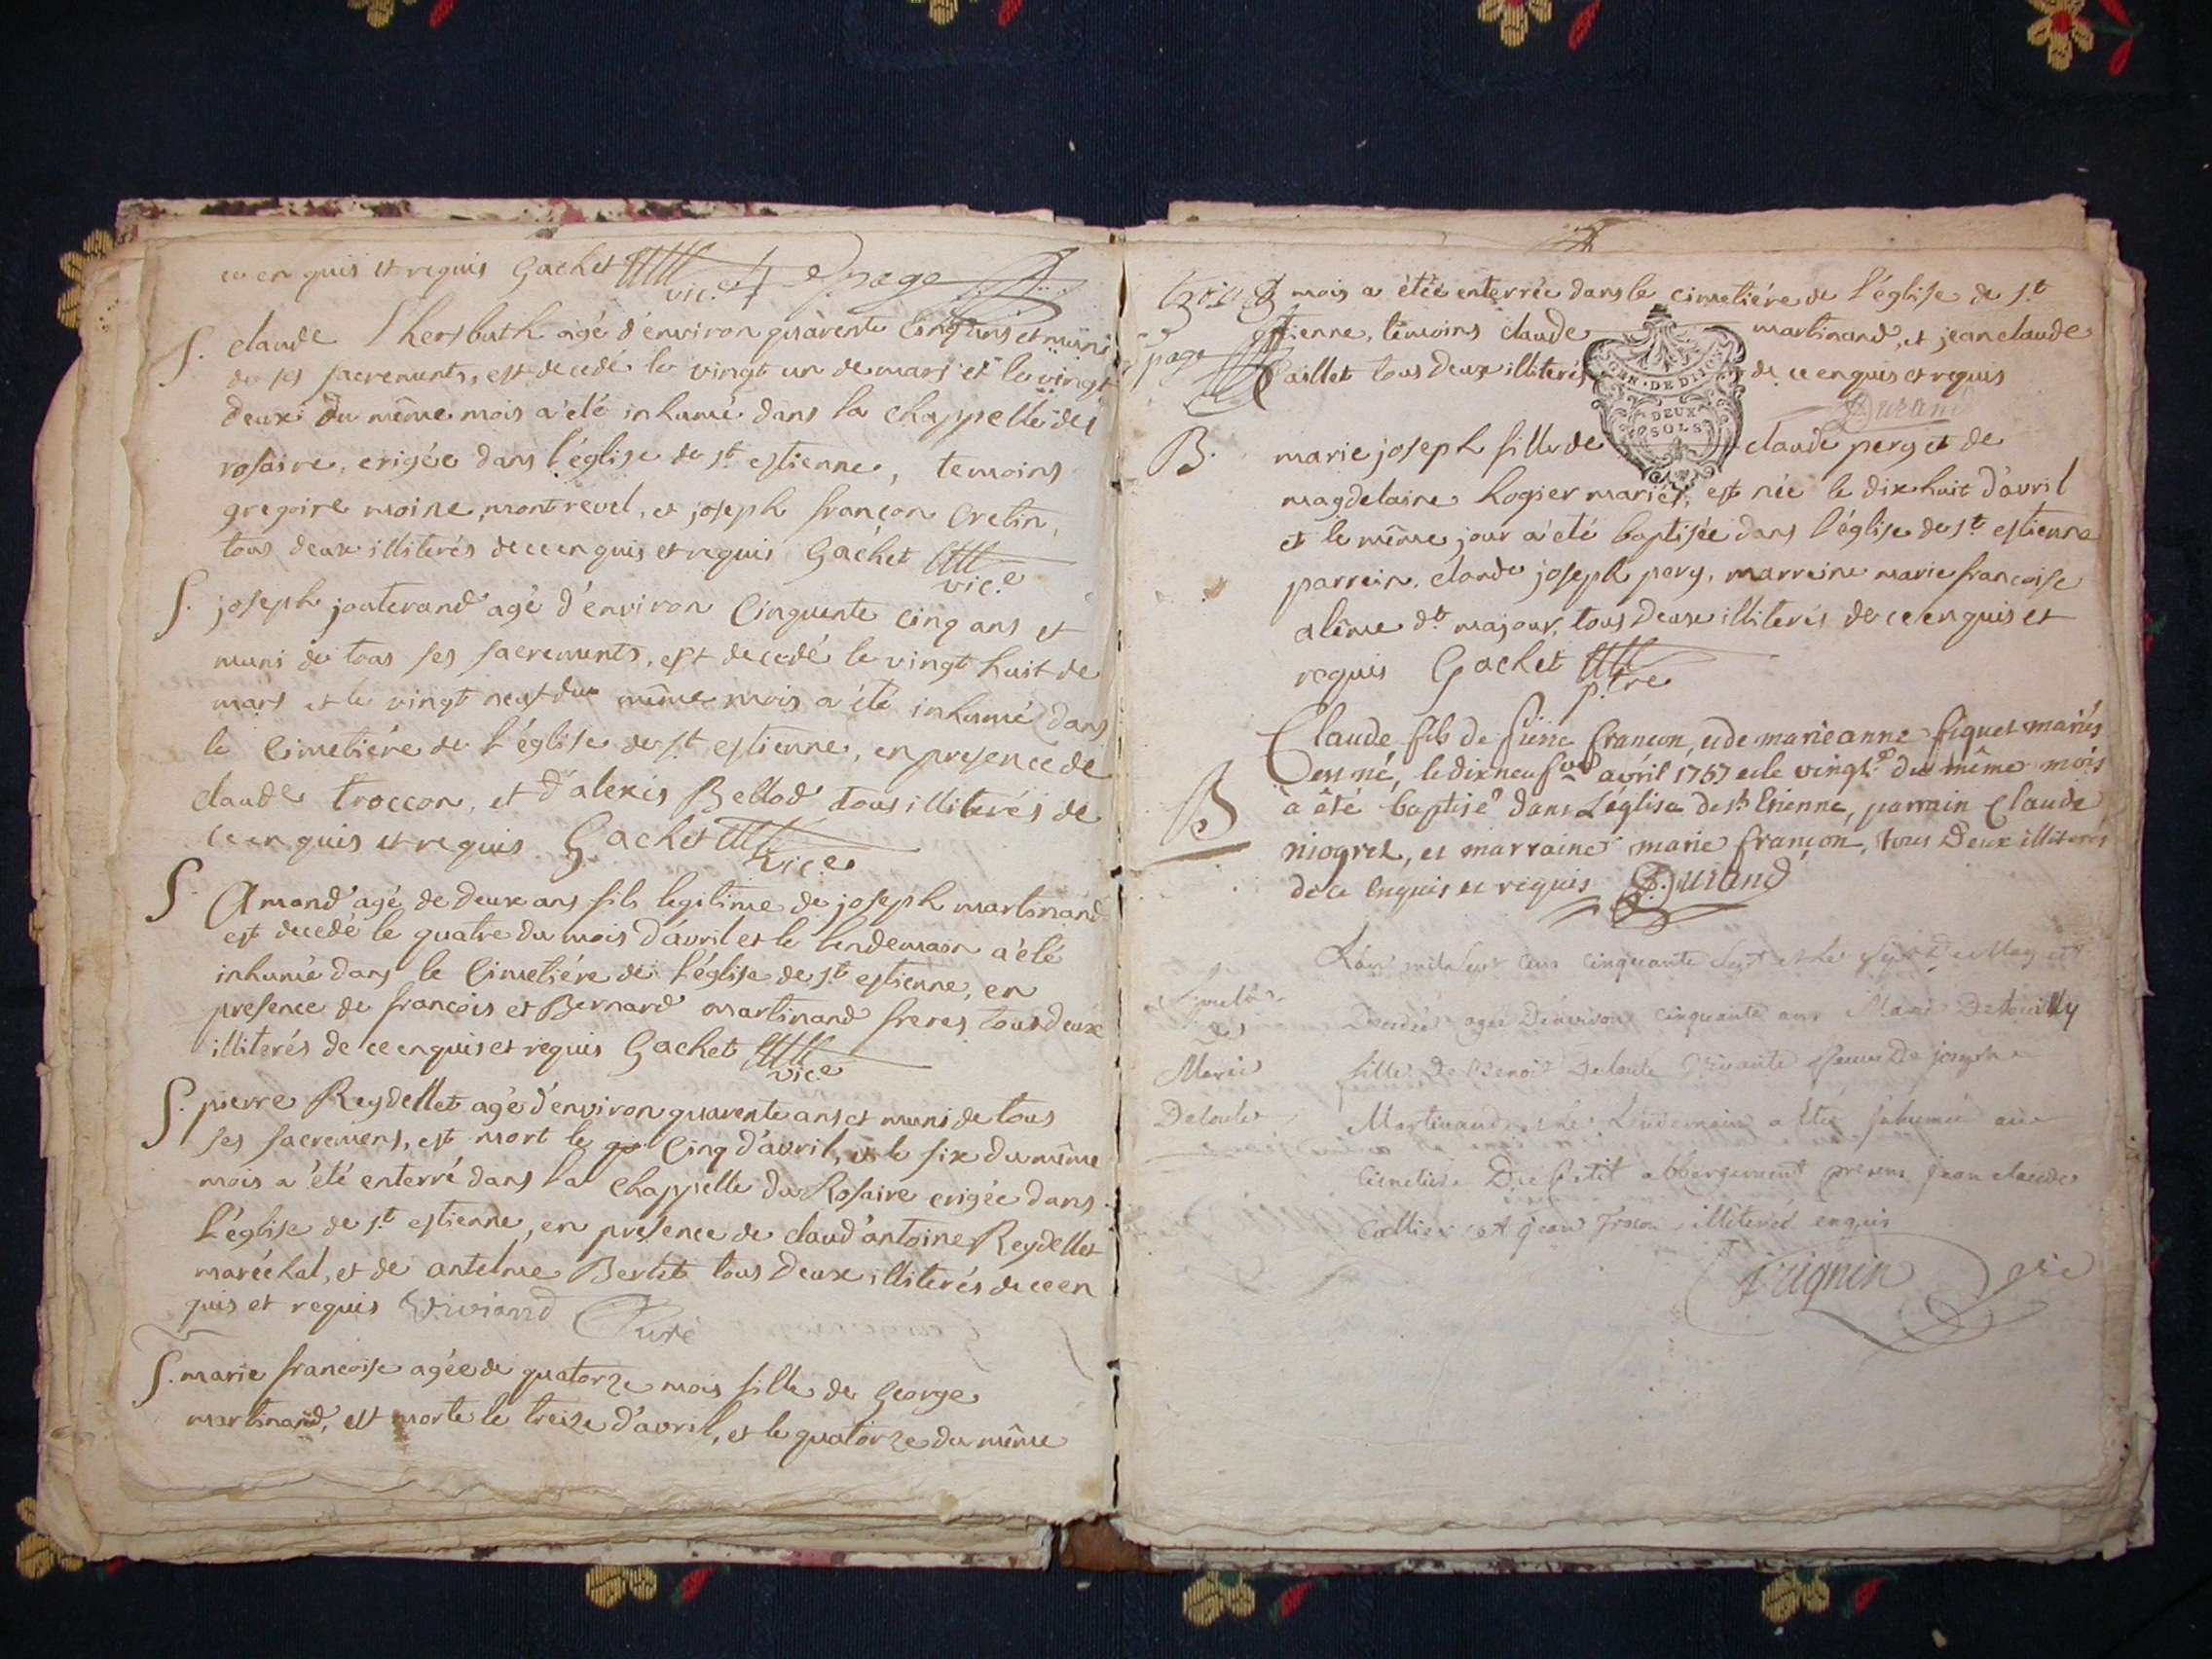 ce enquis et requis Gachet vic.e 4e page
S. claude l'hersbuth agé d'environ quarente cinq ans et muni
de ses sacrements, est decedé le vingt un de mars et le vingt
deux du même mois a été inhumé dans la chappelle des
rosaire, erigée dans l'église de st estienne, temoins
gregoire moine montrevel, et joseph françon Cretin,
tous deux illiterés de ce enquis et requis Gachet
vic.e
S. joseph jouterand agé d'environ Cinquente Cinq ans et
muni de tous ses sacrements, est decedé le vingt huit de
mars et le vingt neuf du même mois a été inhumé dans
le Cimetiére de l'église de st estienne, en presence de
claude troccon, et d'alexis Bellod tous illiterés de
ce enquis et requis Gachet
vic.e
S. Amand agé de deux ans fils legitime de joseph martinand
est decedé le quatre du mois d'avril et le lendemain a été
inhumé dans le Cimetiére de l'église de st estienne, en
presence de françois et Bernard martinand freres tous deux
illiterés de ce enquis et requis Gachet
vic.e
S. pierre Reydellet agé d'environ quarente ans et muni de tous
ses sacremens, est mort le Cinq d'avril, et le six du même
mois a été enterré dans la Chappelle du Rosaire erigée dans
l'église de st estienne, en presence de claud'antoine Reydellet
maréchal, et de antelme Berlet tous deux illiterés de ce en
quis et requis Viviand Curé
S. marie françoise agée de quatorze mois fille de George
martinand, est morte le treize d'avril, et le quatorze du même
mois a étée enterrée dans le cimetiére de l'église de st
page
estienne, témoins claude martinand, et jean claude
Caillet tous deux illiterés de ce enquis et requis
GEN. DE DIJON
DEUX
SOLS
Durand
B. marie joseph fille de claude pery et de
magdelaine hogier mariés, est née le dix huit d'avril
et le même jour a été baptisée dans l'église de st estienne
parrein claude joseph pery, marreine marie françoise
aleme dt majour, tous deux illiterés de ce enquis et
requis Gachet
p.tre
Claude fils de pierre françon, et de marie anne fiquet mariés
est né, le dix neuf avril 1757 et le vingt du même mois
B
a été baptisé dans L'église de st Etienne, parrain Claude
niogret, et marraine marie françon, tous Deux illiterés
de ce Enquis et requis Durand
L'an mil sept cens cinquante sept et le sept De May est
Decedée agée D'environ cinquante ans Marie
Marie
fille De Benoit Deloule vivante femme De joseph
Deloule
Martinand, et le Lendemain a Etée Inhumée au
Cimetiere Du petit abbergement presens jean claude
Callier et jean illiterés enquis